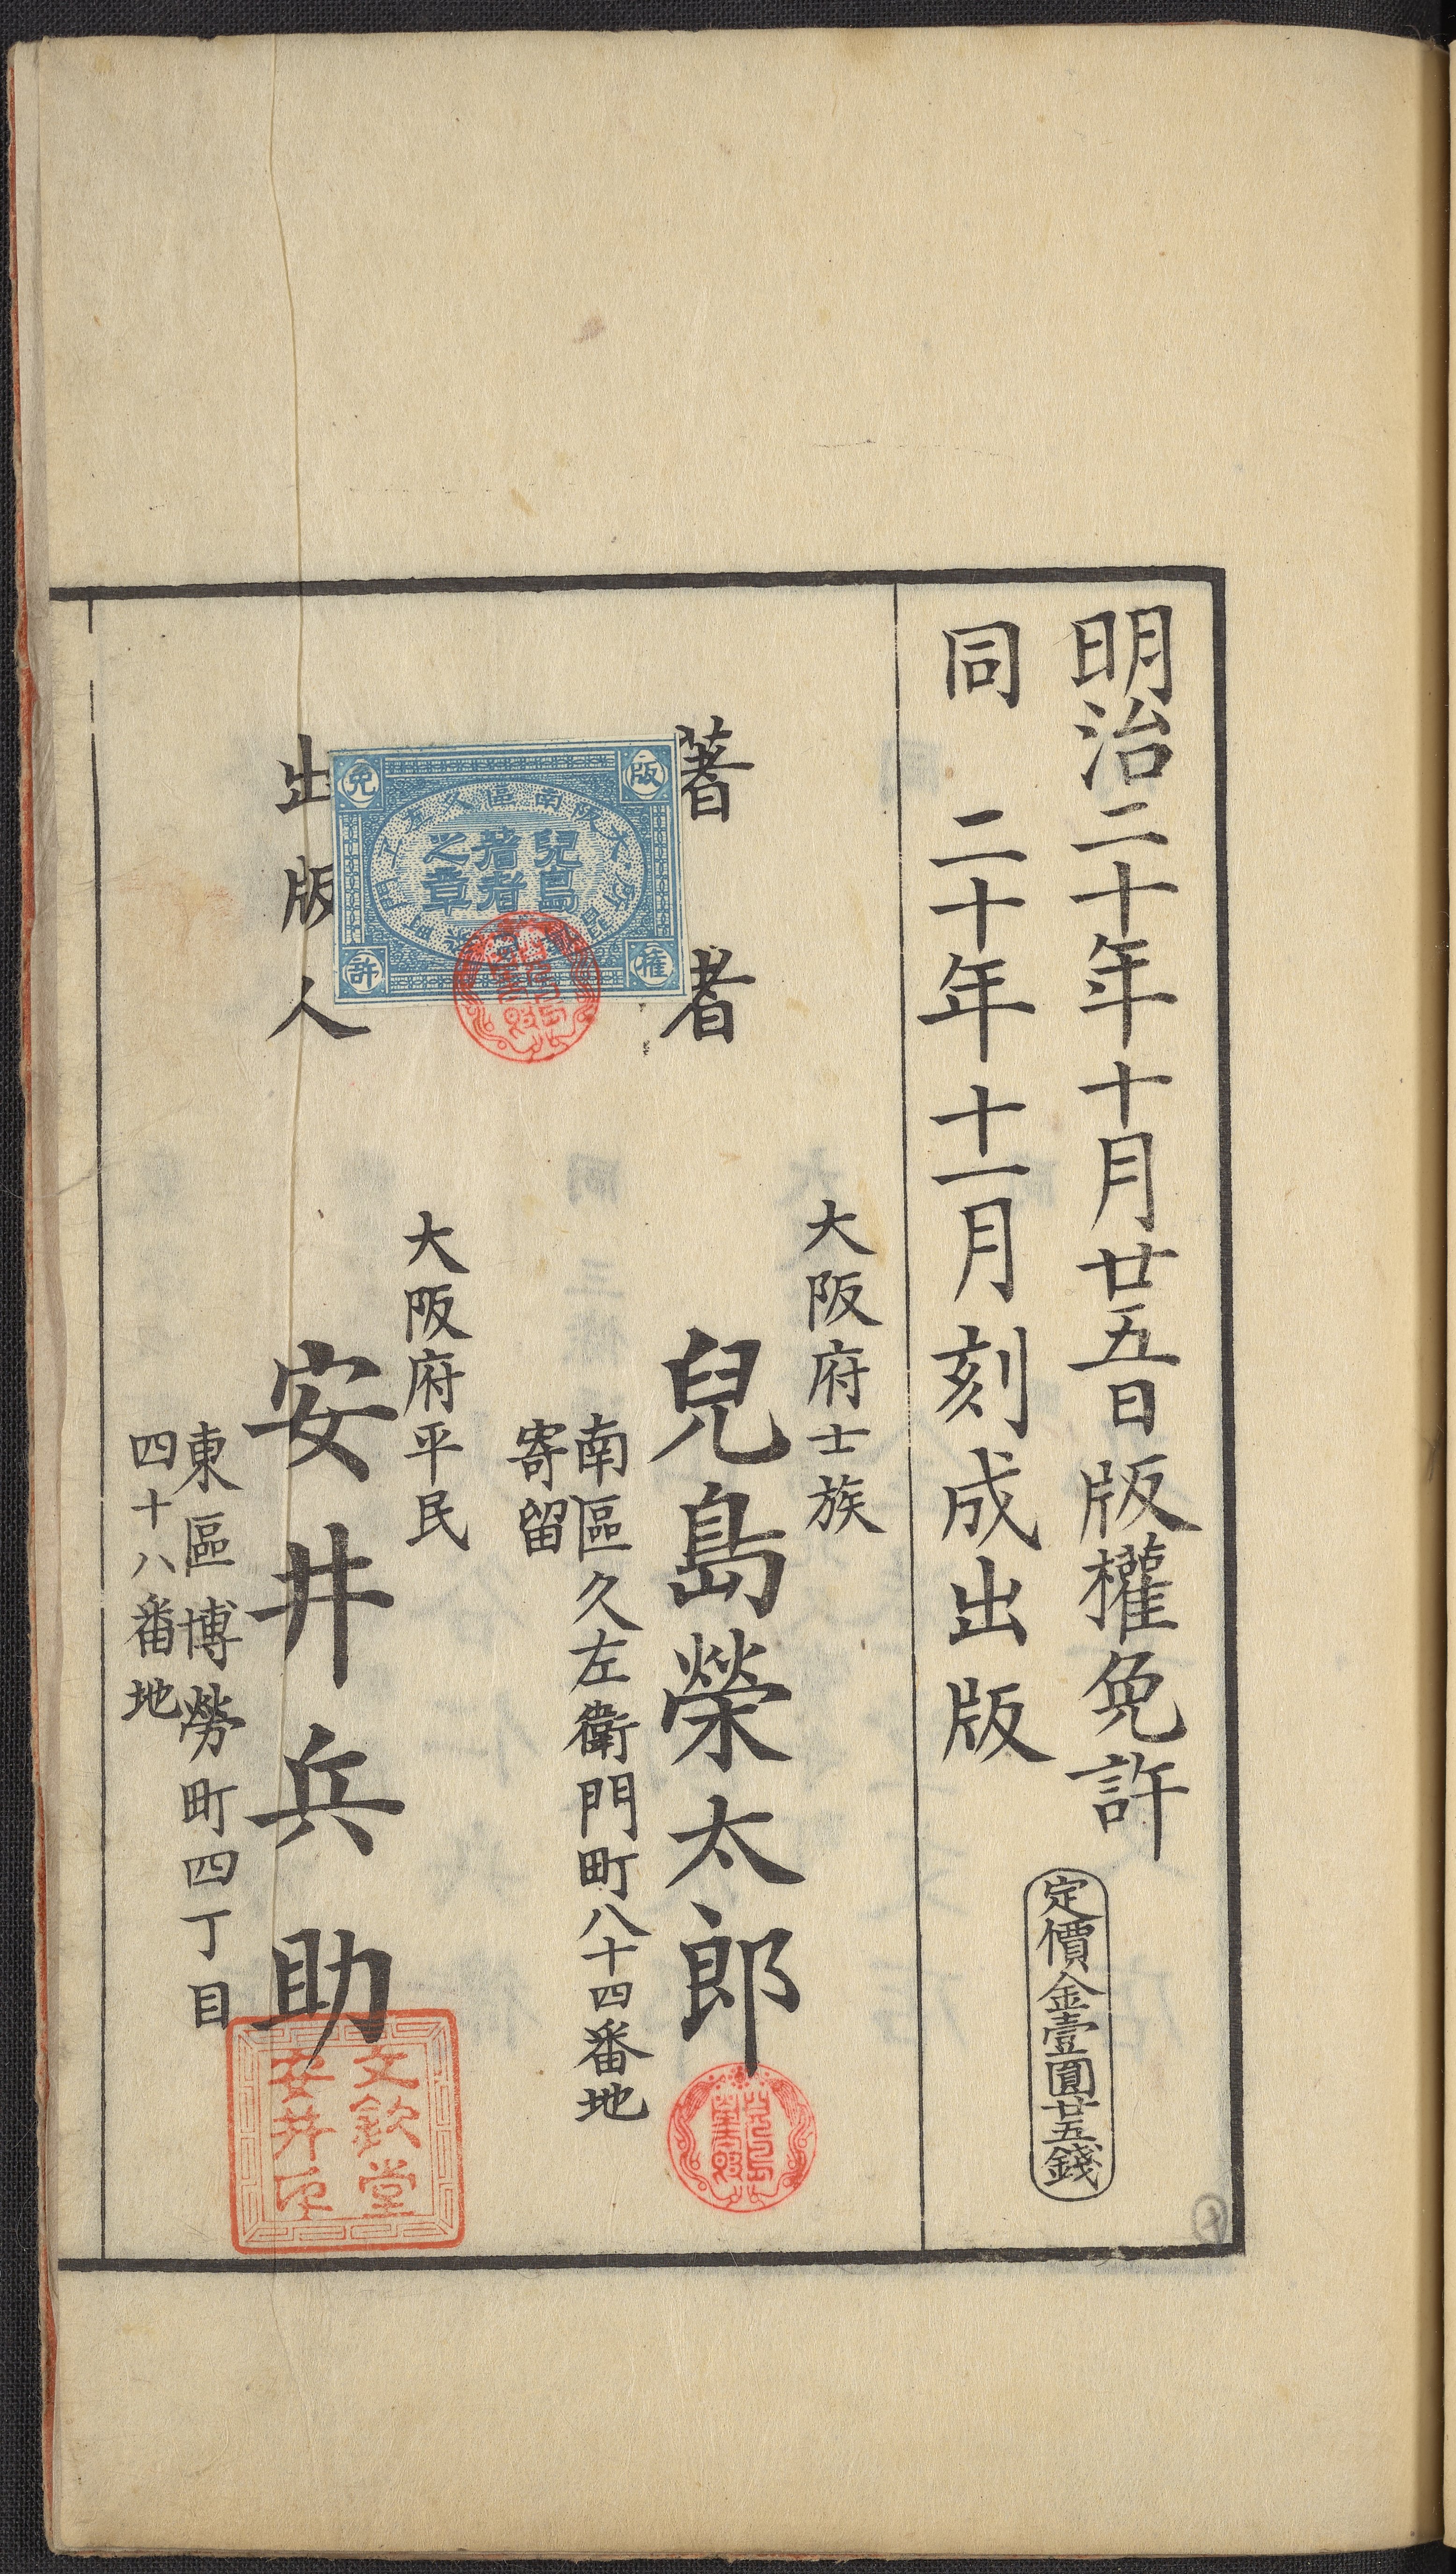 明治二十年十月廿五日版權免許
同 二十年十一月刻成出版
定價金壹圓廿五錢
大阪府士族
著者 兒島榮太郎
南區久左衞門町八十四番地
寄留
版權免許
兒島
著者
之章
大阪府平民
出版人 安井兵助
東區博勞町四丁目
四十八番地
文欽堂
安井印